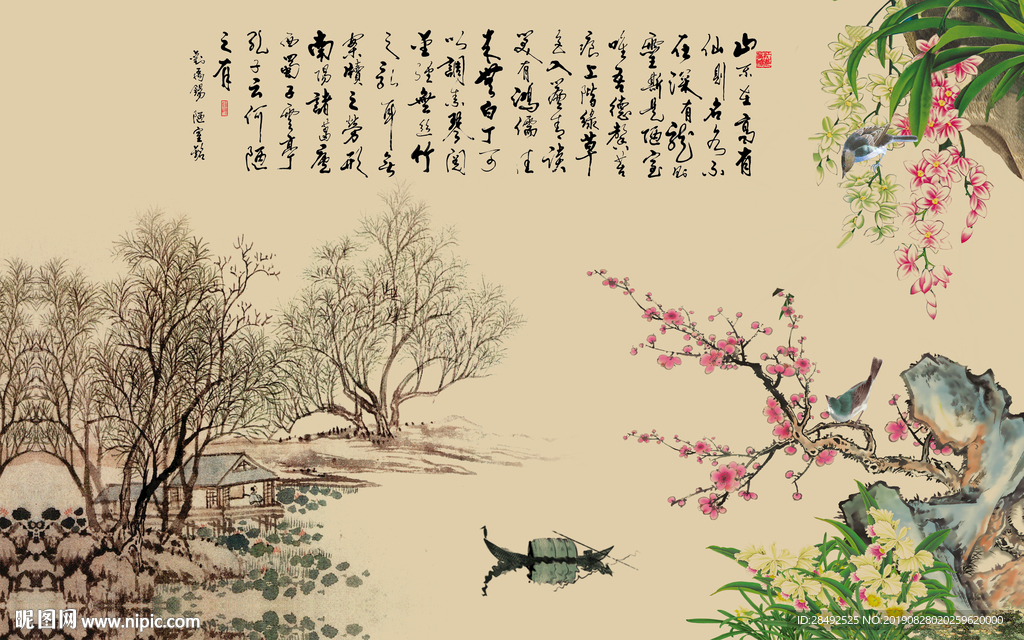 山不在高有
仙則名水不
在深有龍則
靈斯是陋室
唯吾德馨苔
痕上階綠草
色入簾青談
笑有鴻儒往
來無白丁可
以調素琴閱
金經無絲竹
之亂耳無
案牘之勞形
南陽諸葛廬
西蜀子雲亭
孔子云何陋
之有
劉禹錫 陋室銘
昵图网 www.nipic.com
ID:28492525 NO:20190828020259620000